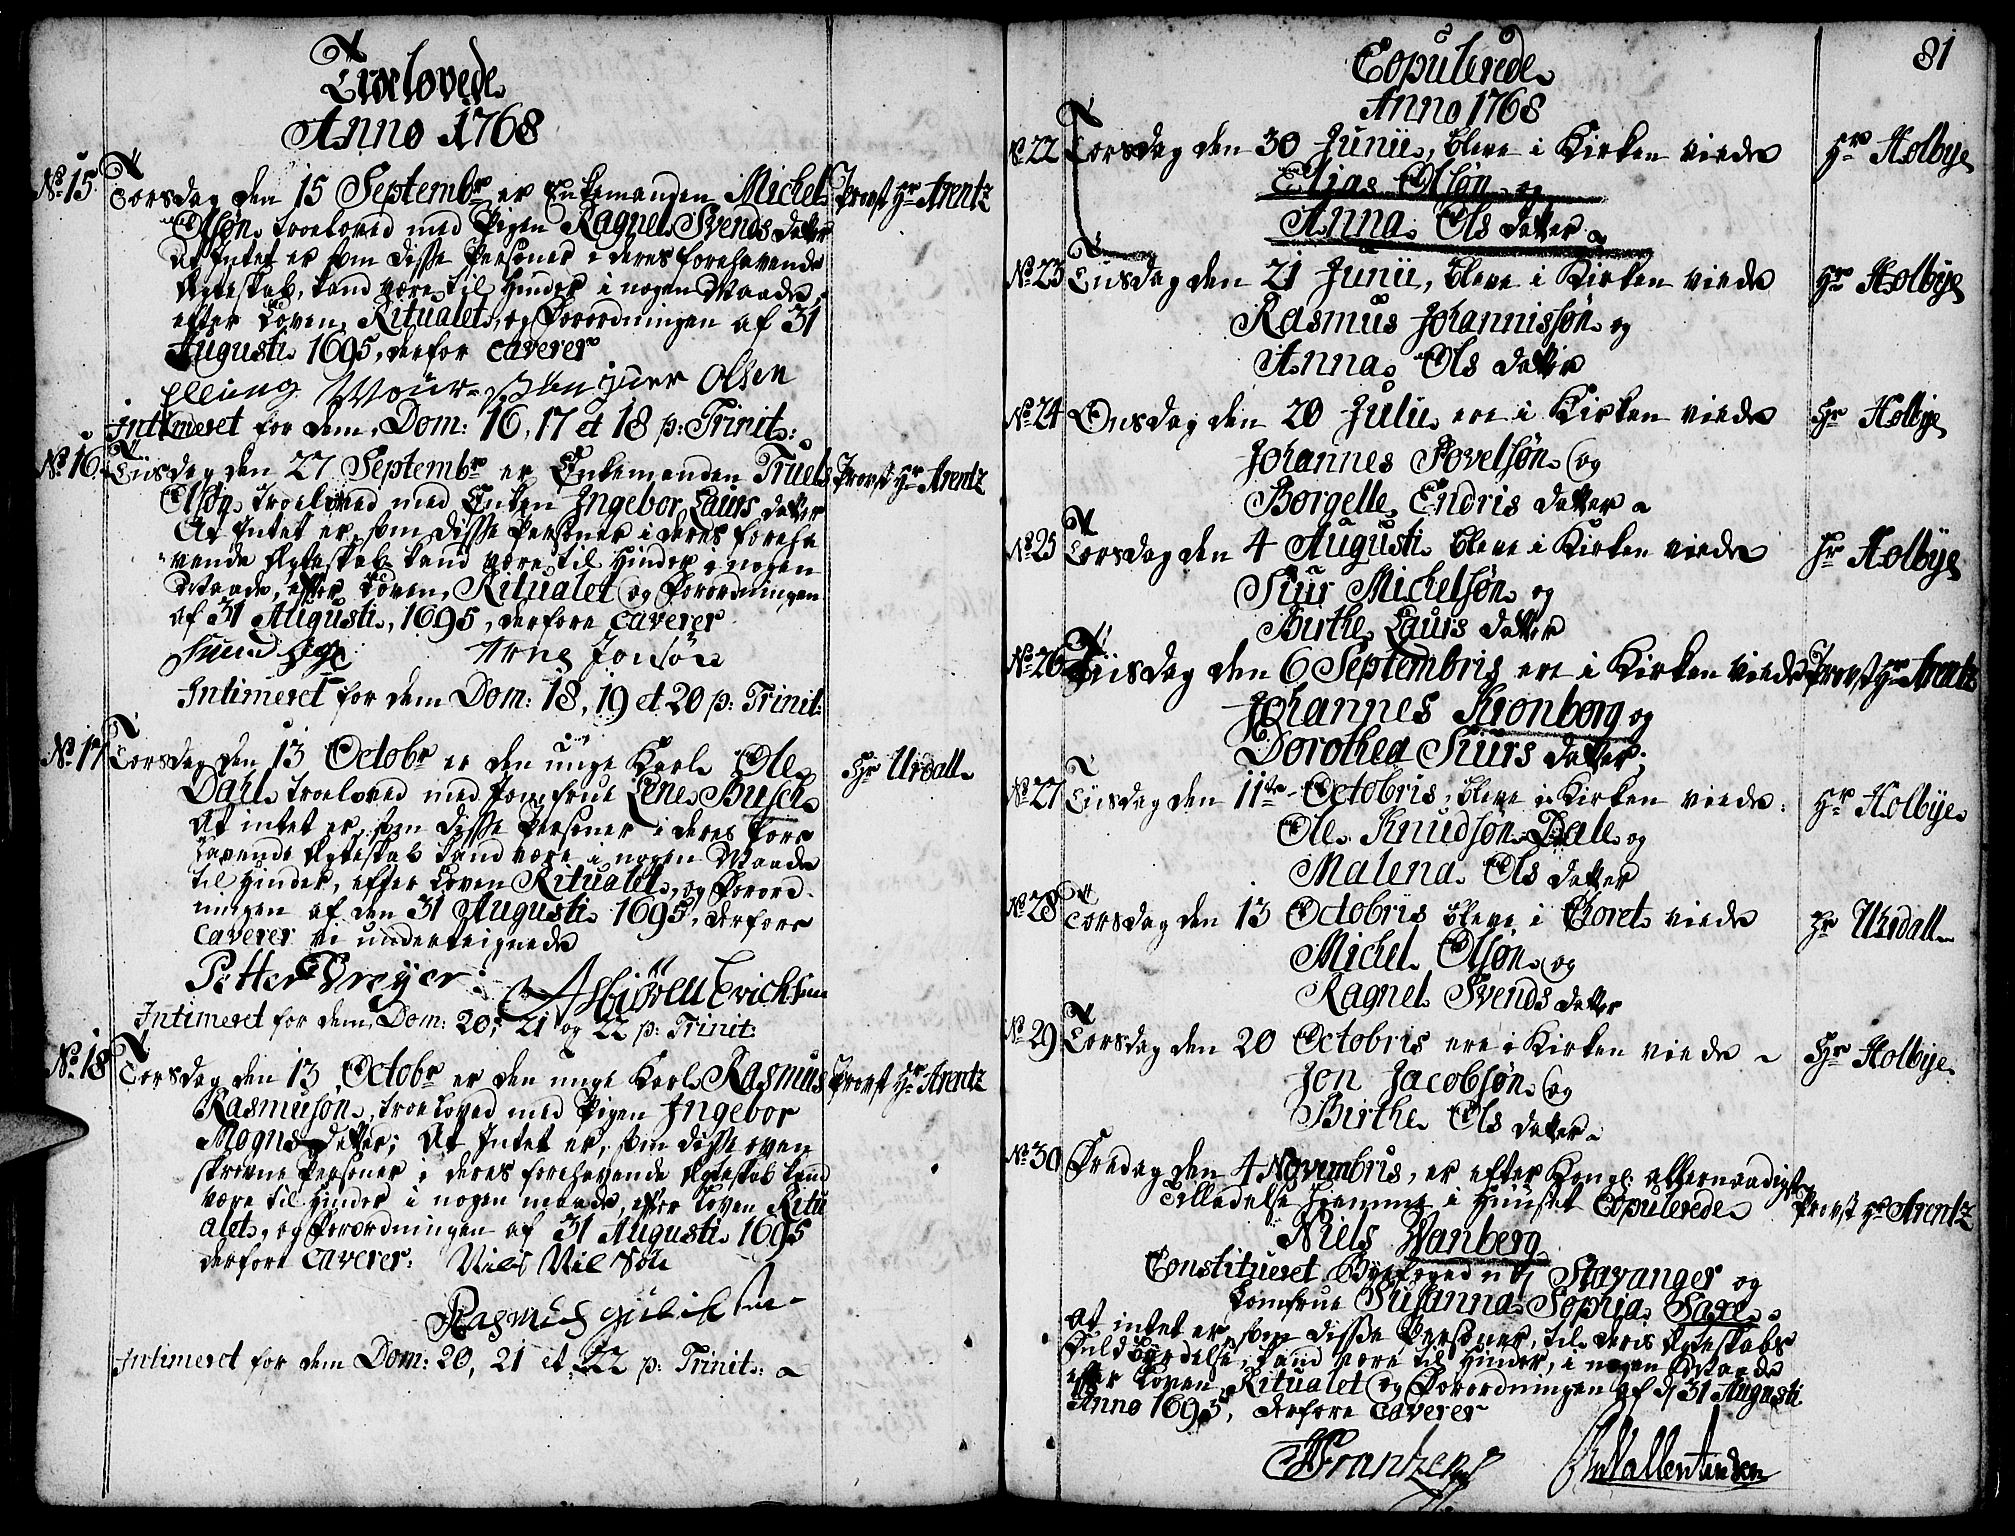 Troelovede
Anno 1768
No 15
Torsdag den 15 Septembr er Enkemanden Michel
Provst Hr Arentz
Olsøn troeloved med Pigen Ragnel Svends datter
At Intet er som disse Persones i deres forehavende
Ægteskab, kand være til Hinder i nogen Maade,
efter Loven, Ritualet, og Forordningen af 31
Augusti 1695, derfor Caverer
Elling Olsen
Intimeret for dem, Dom: 16, 17 et 18 p: Trinit:
No 16
Tiisdag den 27 Septembr er Enkemanden Truels
Provst Hr Arentz
Olsøn troeloved med Enken Ingebor Laurs datter
At Intet er, som disse Persones i deres foreha
vende Ægteskab kand være til Hinder i nogen
Maade, efter Loven, Ritualet og Forordningen
af 31 Augusti, 1695, derfore Caverer
Arne Jonsön
Intimeret for dem Dom: 18, 19 et 20 p: Trinit:
No 17
Torsdag den 13 Octobr er den unge Karl Ole
Hr Urdall
Dahl troeloved med Jomfrue Lene Busch
At intet er, som disse Persones i deres fore
havende Ægteskab kand være i nogen Maade
til Hinder, efter Loven Ritualet, og Forord
ningen af den 31 Augusti 1695, derfore
Caverer vi underteignede
Petter Dreÿer:
Asbiören Erichsen
Intimeret for dem, Dom: 20, 21 og 22 p: Trinit:
No 18
Torsdag den 13 Octobr er den unge Karl Rasmus
Provst Hr Arentz
Rasmusøn, troeloved med Pigen Ingebor
Mogns datter; At Intet er, som disse oven
skrevne Persones i deres forehavende Ægteskab kand
være til Hinder i nogen maade, efter Loven Ritu
alet, og Forordningen af 31 Augusti 1695
derfore Caverer: Nils Nil Søn
Rasmus
Intimeret for dem Dom: 20, 21 et 22 p: Trinit:
81
Copulerede
Anno 1768
No 22
Torsdag den 30 Junii, bleve i Kirken viede
Hr Holbye
Elias Olsøn og
Anna Ols datter
No 23
Tiisdag den 21 Junii, bleve i Kirken viede
Hr Holbye
Rasmus Johannissøn og
Anna Ols datter
No 24
Onsdag den 20 Julii ere i Kirken viede
Hr Holbye
Johannes Povelsøn og
Borgelle Endris datter
No 25
Torsdag den 4 Augusti bleve i Kirken viede
Hr Holbye
Siur Michelsøn og
Birthe Laurs datter
No 26
Tiisdag den 6 Septembris ere i Kirken viede
Provst Hr Arentz
Johannes Kronberg og
Dorothea Siurs datter;
No 27
Tiisdag den 11te Octobris, bleve i Kirken viede
Hr Holbye
Ole Knudsøn Dale og
Malena Ols datter
No 28
Torsdag den 13 Octobris bleve i Coret viede
Hr Urdall
Michel Olsøn og
Ragnel Svends datter
No 29
Torsdag den 20 Octobris ere i Kirken viede
Hr Holbye
Jon Jacobsøn og
Birthe Ols datter
No 30
Fredag den 4 Novembris, er efter Kongl: allernaadigste
Tilladelse hiemme i Huuset Copulerede
Provst Hr Arentz
Niels Wanberg
Constitueret Byefoged udj Stavanger og
Jomfrue Susanna Sophia Saxe
At intet er, som disse Persones, til deris Ægteskabs
Fuldbyrdelse, kand være til Hinder, i nogen Maade
efter Loven, Ritualet og Forordningen af d 31 Augusti
Anno 1695, derfore Caverer
Frantzen
Vallentinsen